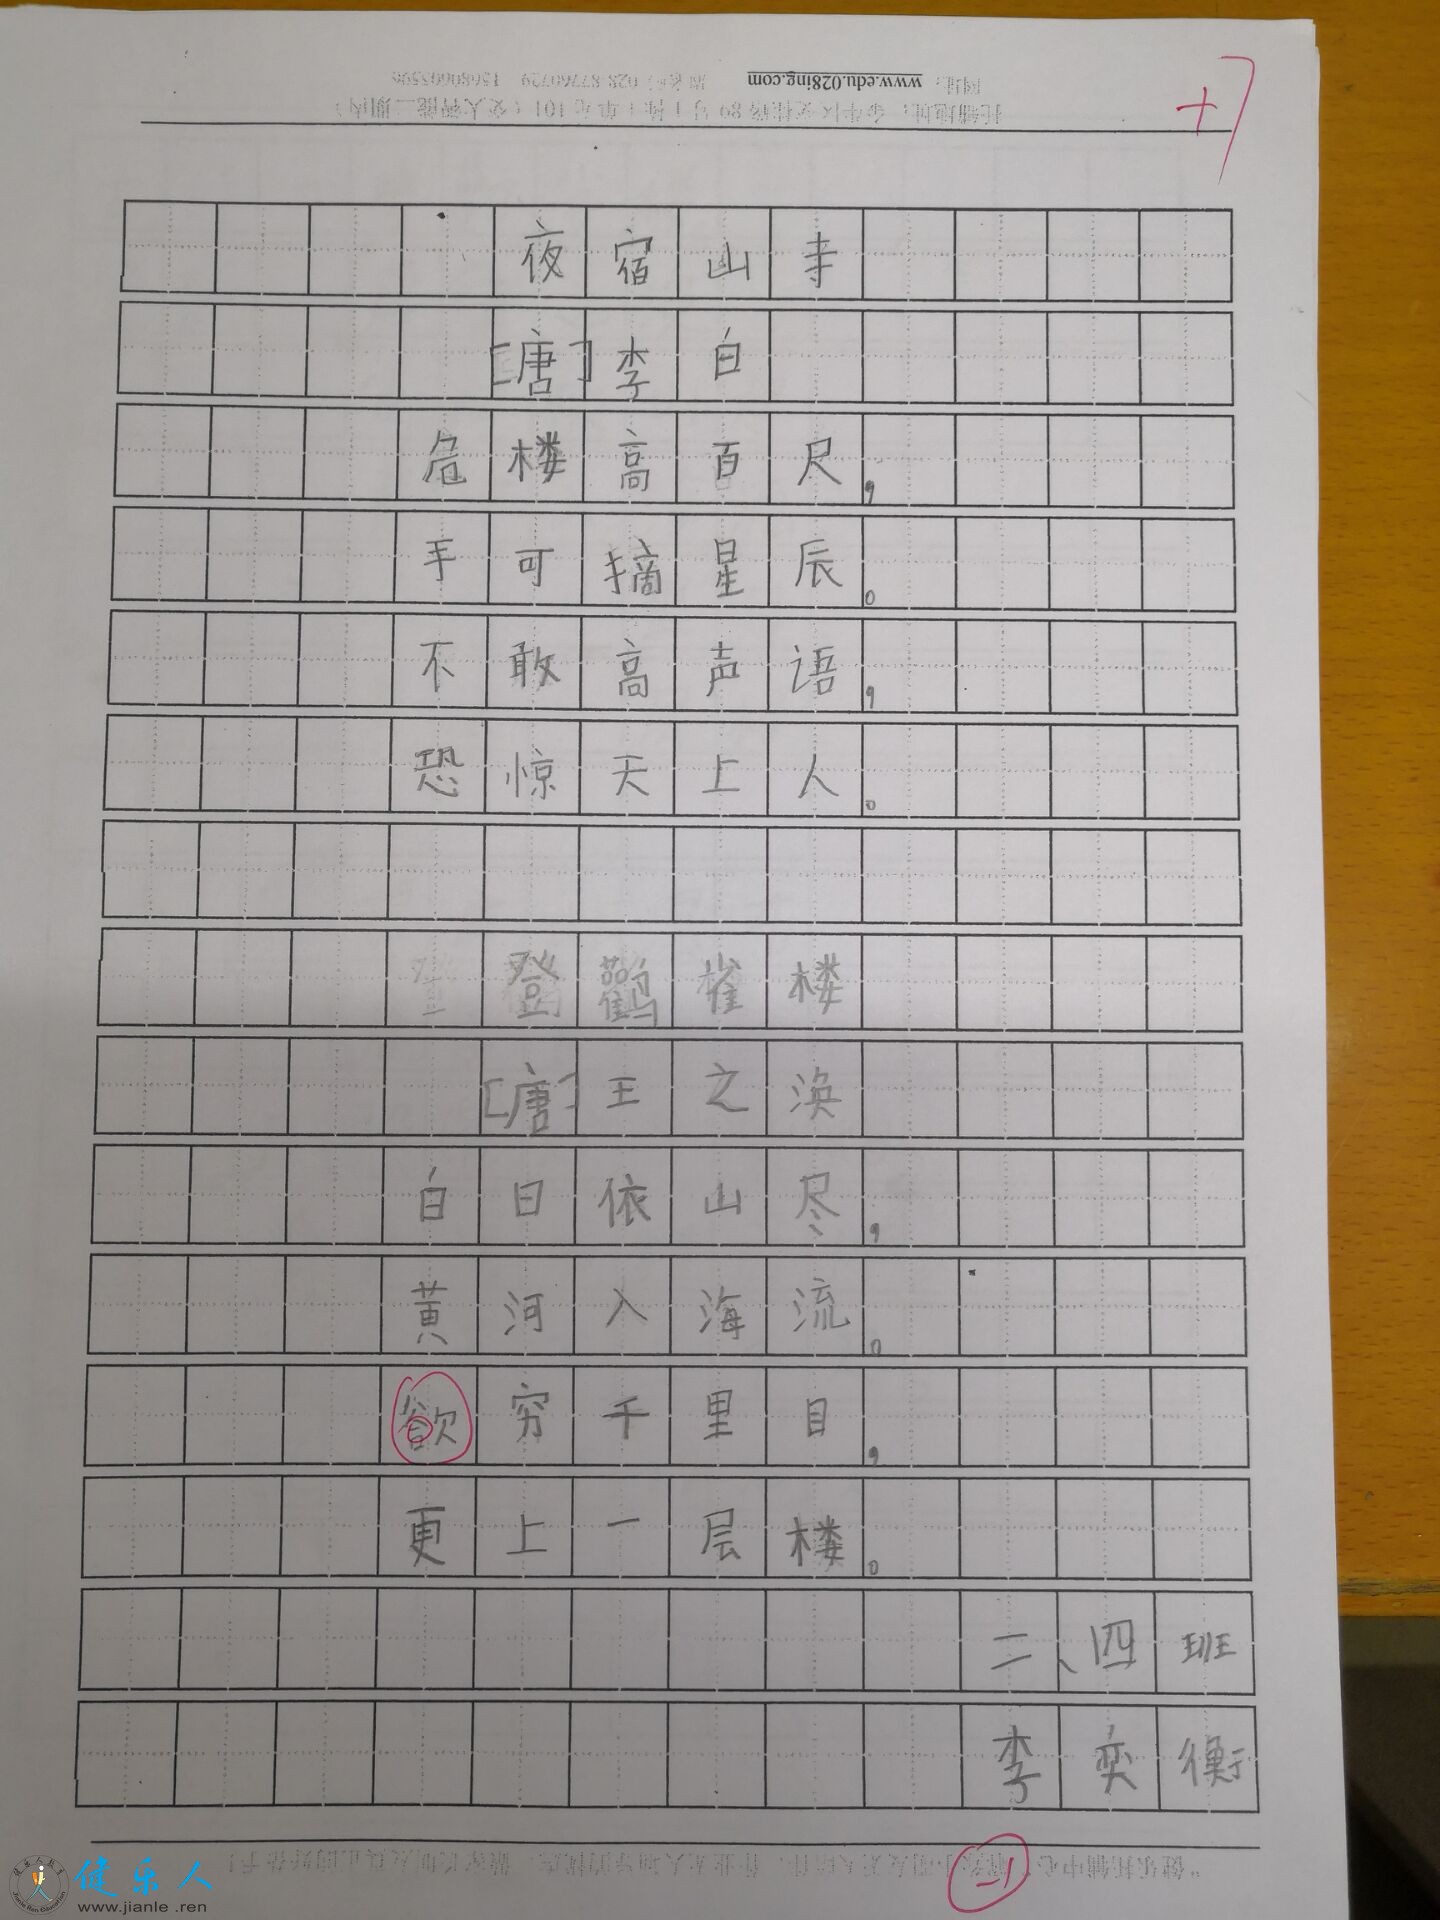 网址：www.edu.028ing.com
+7
夜宿山寺
[唐]李白
危楼高百尺，
手可摘星辰。
不敢高声语，
恐惊天上人。
登鹳雀楼
[唐]王之涣
白日依山尽，
黄河入海流。
欲穷千里目，
更上一层楼。
二、四班
李奕衡
-1
健乐人
www.jianle.ren